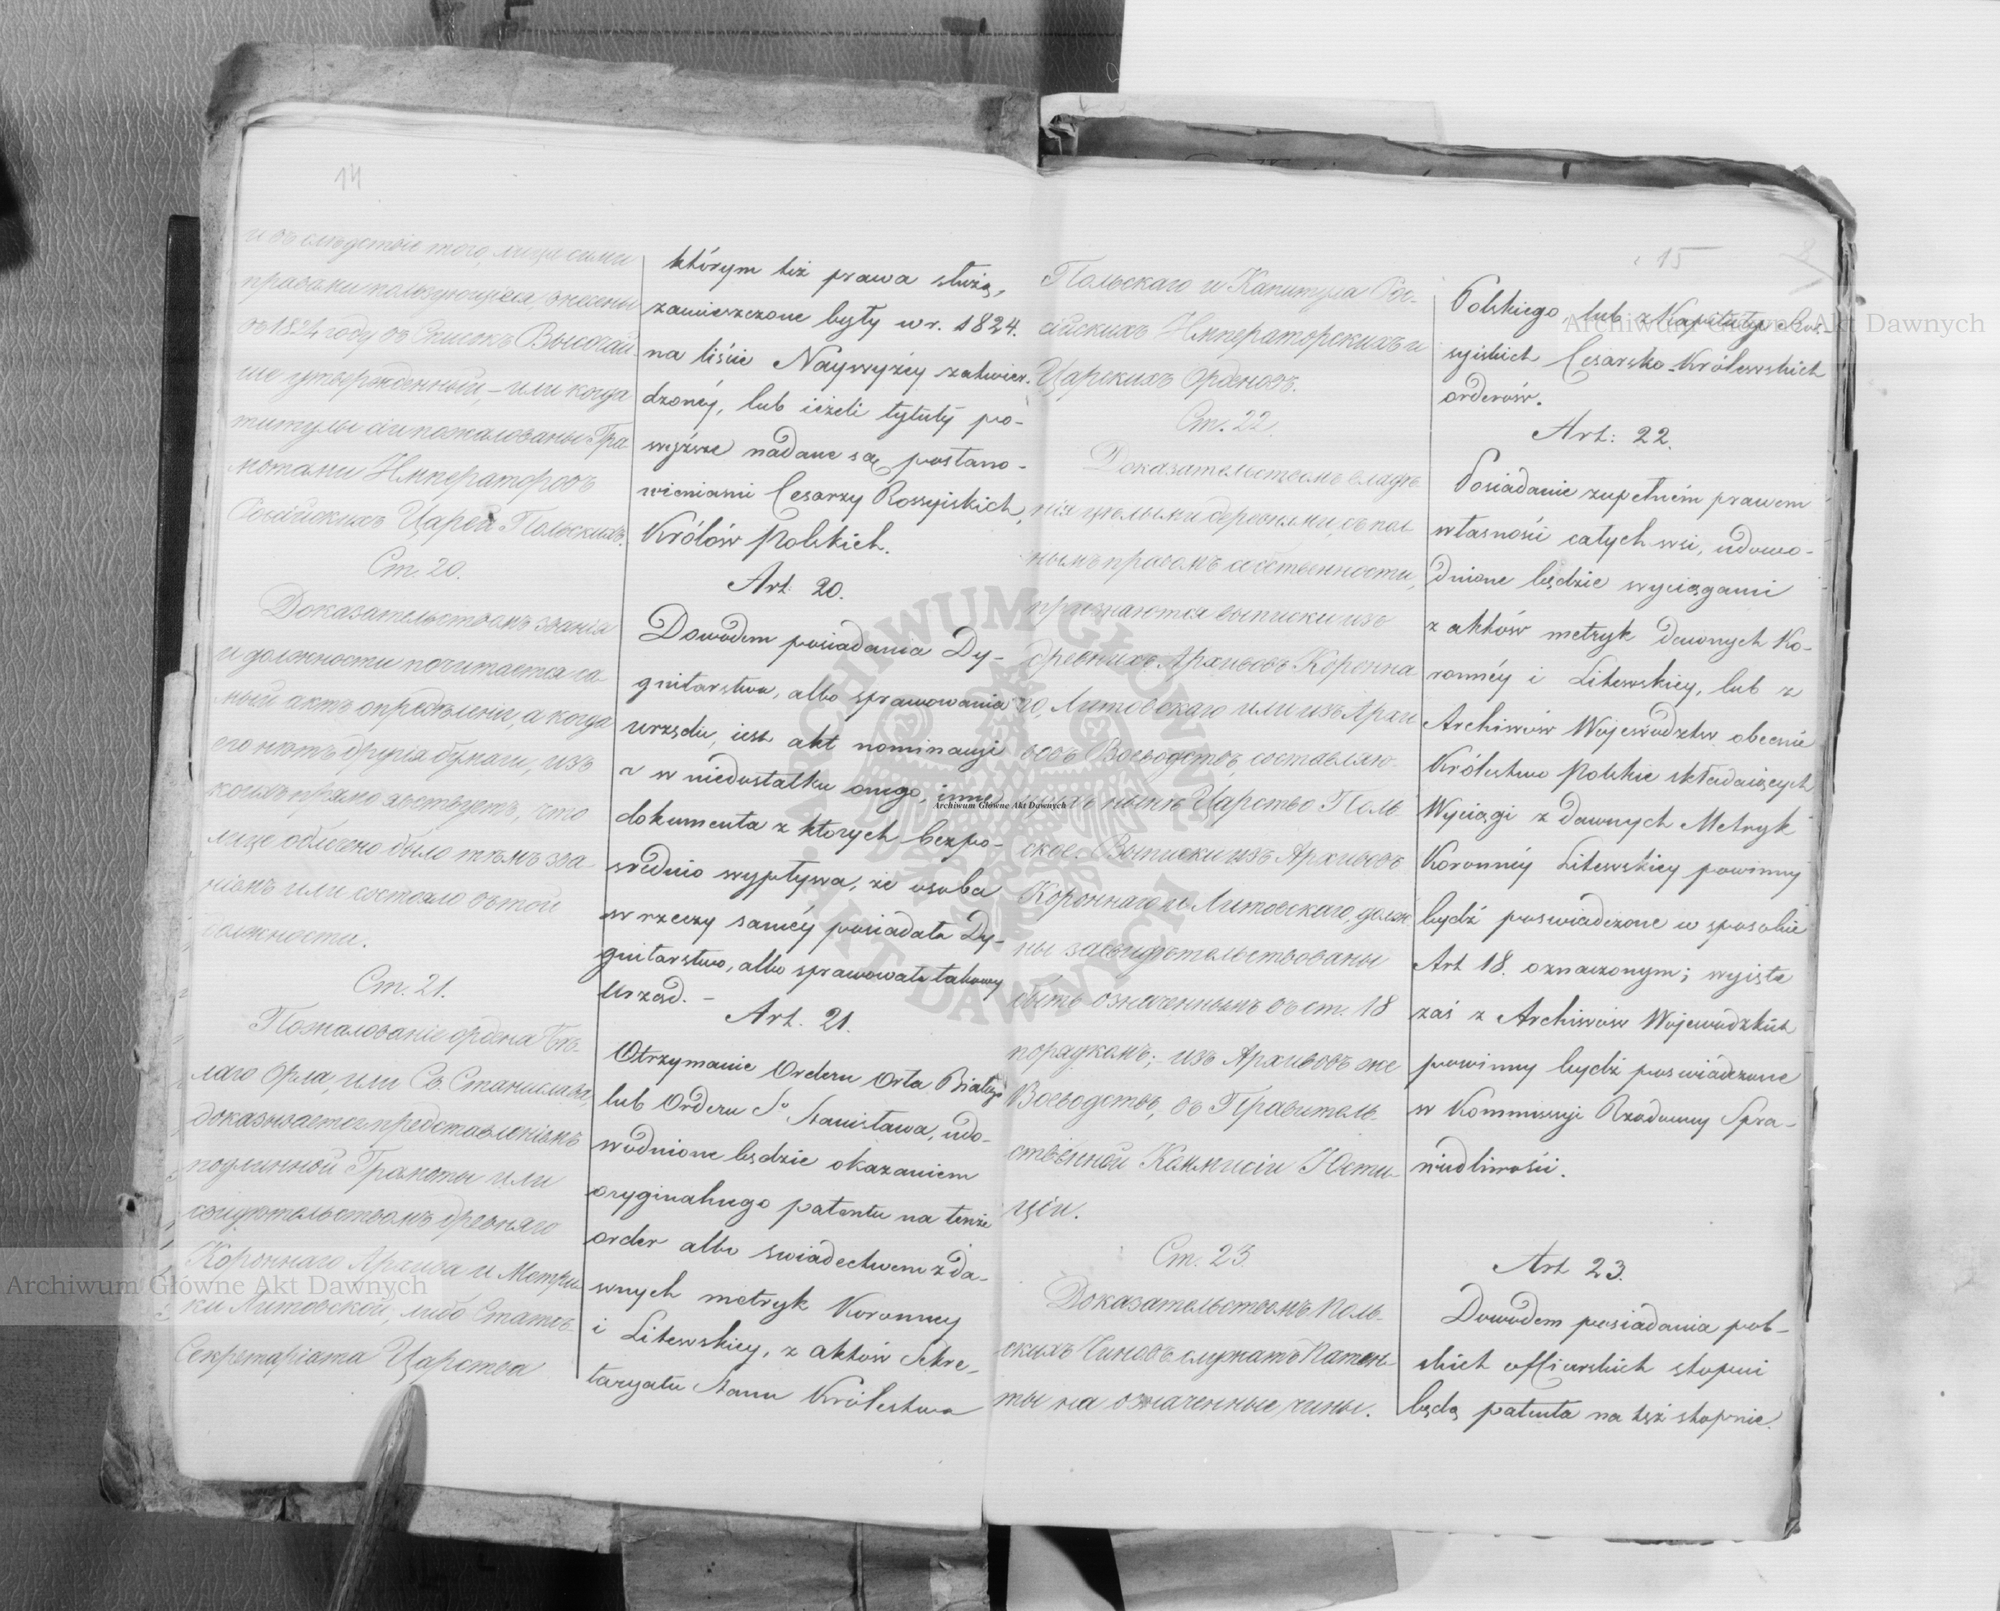 14
и въ слѣдствіе того, лица сими
правами пользующіяся, внесены
въ 1824 году въ Списокъ Высочай
ше утвержденный, - или когда
титулы сіи пожалованы Гра
мотами Императоровъ
Царей Польскихъ.
Ст. 20.
Доказательствомъ званія
и должности почитается са
мый актъ опредѣленія, а когда
его нѣтъ другія бумаги, изъ
коихъ прямо явствуетъ, что
лице облечено было тѣмъ зва
ніемъ или состояло въ той
должности.
Ст. 21.
Пожалованіе ордена Бѣ-
лаго Орла, или Св. Станислава,
доказывается представленіемъ
подлинной Грамоты или
свидѣтельствомъ древняго
Короннаго Архива и Метри
ки Литовской, либо Статсъ-
Секретаріата Царства
którym też prawa służą,
zamieszczone były w r. 1824.
na liście Naywyżéy zatwier-
dzonéy, lub ieżeli tytuły po-
wyższe nadane są postano-
wieniami Cesarzy Rossyiskich,
Królów Polskich.
Art. 20.
Dowodem posiadania Dy-
gnitarstwa, albo sprawowania
urzędu, iest akt nominacyi
a w niedostatku onego, inne
dokumenta z których bezpo-
srednio wypływa, że osoba
w rzeczy saméy posiadała Dy-
gnitarstwo, albo sprawowała takowy
Urząd. -
Art. 21.
Otrzymanie Orderu Orła Białego
lub Orderu Sº Stanisława, udo-
wodnione będzie okazaniem
oryginalnego patentu na tenże
order albo swiadectwem z da-
wnych metryk Koronney
i Litewskiey, z aktów Sekre-
taryatu Stanu Królestwa
15
Польскаго и Капитула Рос-
сійскихъ Императорскихъ и
Царскихъ Орденовъ.
Ст. 22.
Доказательствомъ владѣ
нія цѣлыми деревнями, съ пол
нымъ правомъ собственности,
признаются выписки изъ
древнихъ Архивовъ Коронна
го, Литовскаго или изъ Архи
вовъ Воеводствъ, составляю-
щихъ нынѣ Царство Поль
ское. Выписки изъ Архивовъ
Короннаго и Литовскаго, долж
ны засвидѣтельствованы
быть означеннымъ въ ст. 18
порядкомъ; - изъ Архивовъ же
Воеводствъ, въ Правитель-
ственной Коммисіи Юсти-
ціи.
Ст. 23
Доказательствомъ Поль-
скихъ Чиновъ служатъ Патен-
ты на означенные чины.
Polskiego, lub z Kapituły Ros-
syiskich Cesarsko-Królewskich
orderów.
Art: 22.
Posiadanie zupełném prawem
własności całych wsi, udowo-
dnione będzie wyciągami
z aktów metryk dawnych Ko-
ronnéy i Litewskiey, lub z
Archiwów Województw obecnie
Królestwo Polskie składaiących
Wyciągi z dawnych Metryk
Koronnéy Litewskiey powinny
bydź poswiadczone w sposobie
Art 18. oznaczonym; wyięte
zaś z Archiwów Wojewódzkich
powinny bydź poswiadczone
w Kommissyi Rządowey Spra-
wiedliwości.
Art 23.
Dowodem posiadania pol-
skich officerskich stopni
będą patenta na też stopnie.
Archiwum Główne Akt Dawnych
Archiwum Główne Akt Dawnych
Archiwum Główne Akt Dawnych
ARCHIWUM GŁÓWNE AKT DAWNYCH